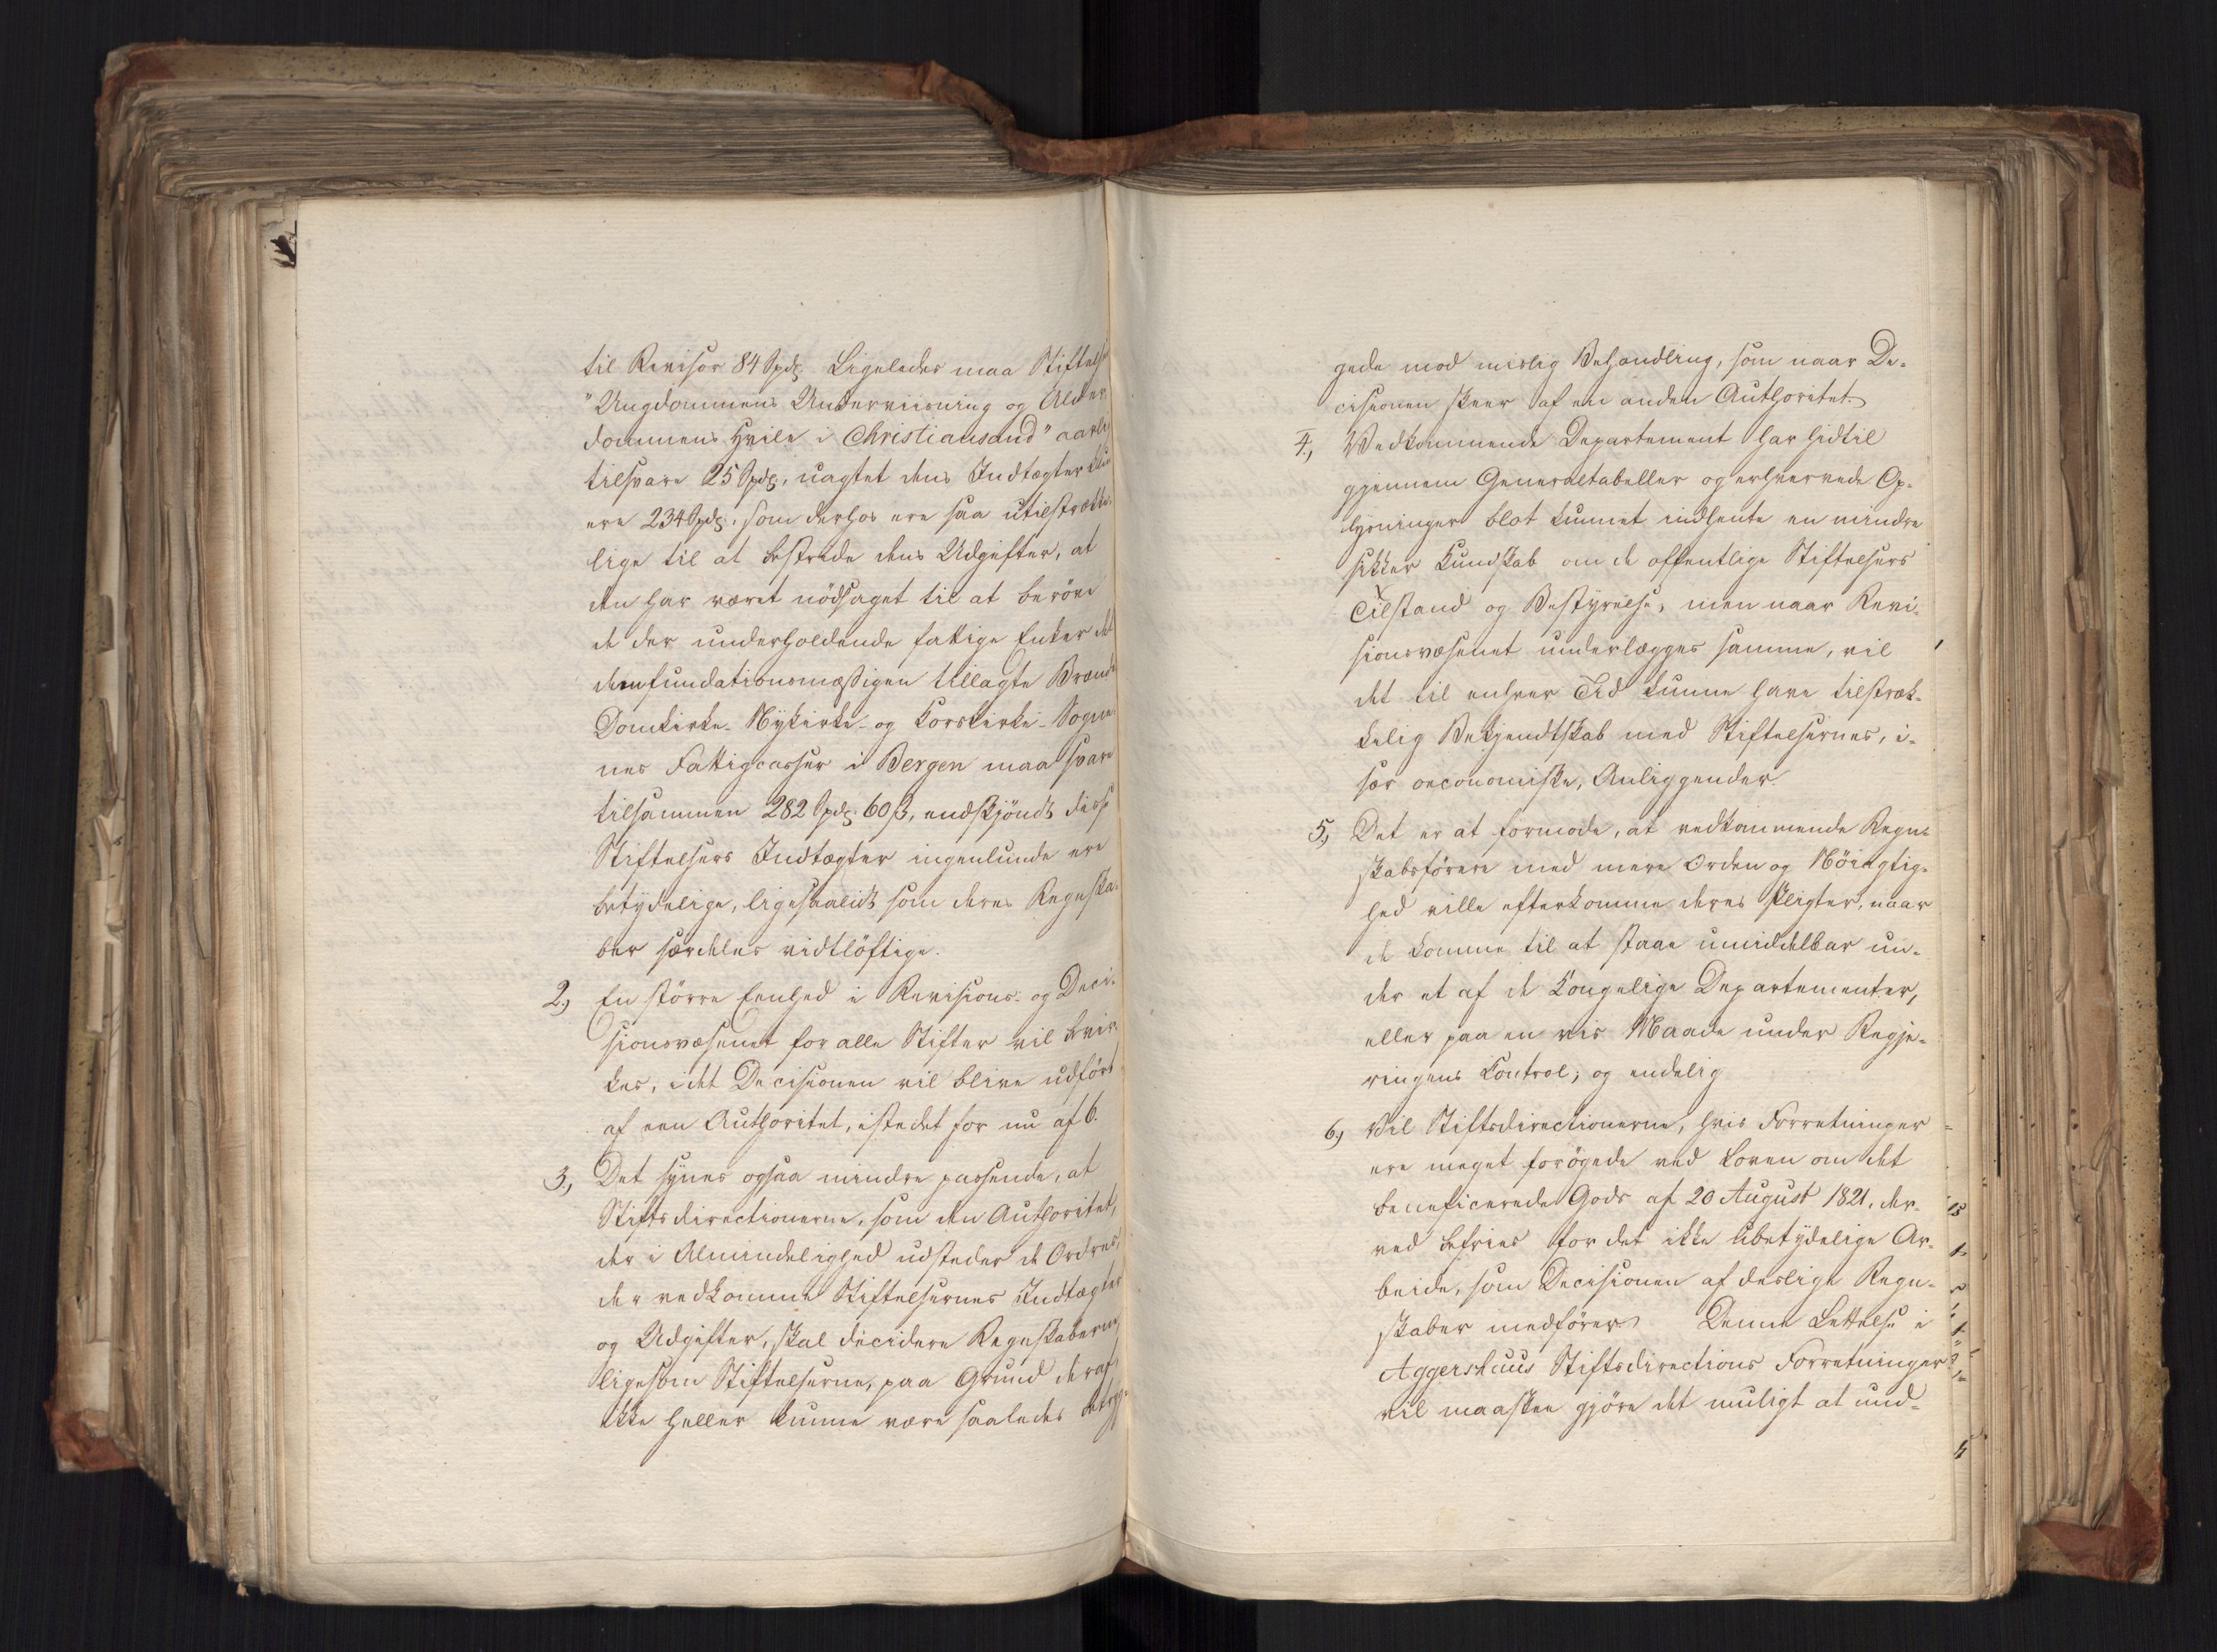 til Revisor 84 Spd. Ligeledes maa Stiftelsen
"Ungdommens Underviisning og Alder-
dommens Hvile i Christiansand" aarlig
tilsvare 25 Spd., uagtet dens Indtægter kun
ere 234 Spd., som derhos ere saa utilstrække-
lige til at bestride dens Udgifter, at
den har været nödsaget til at beröve
de der underholdende fattige Enker det
dem fundationsmæssigen tillagte Brænde
Domkirke- Nykirke- og Korskirke-Sogne-
nes Fattigcasser i Bergen maa svare
tilsammen 282 Spd. 60 β, endskjöndt disse
Stiftelsers Indtægter ingenlunde ere
betydelige, ligesaalidt som deres Regnska-
ber særdeles vidtlöftige.
2, En större Eenhed i Revisions- og Deci-
sionsvæsenet for alle Stifter vil bevir-
kes, idet Decisionen vil blive udfört
af een Authoritet, istedet for nu af 6.
3, Det synes ogsaa mindre passende, at
Stiftsdirectionerne, som den Authoritet,
der i Almindelighed udsteder de Ordres,
der vedkomme Stiftelsernes Indtægter
og Udgifter, skal decidere Regnskaberne,
ligesom Stiftelserne, paa Grund deraf,
ikke heller kunne være saaledes betryg-
gede mod mislig Behandling, som naar De-
cisionen skeer af en anden Authoritet.
4, Vedkommende Departement har hidtil
gjennem Generaltabeller og erhvervede Op-
lysninger blot kunnet indhente en mindre
sikker Kundskab om de offentlige Stiftelsers
Tilstand og Bestyrelse, men naar Revi-
sionsvæsenet underlægges samme, vil
det til enhver Tid kunne have tilstræk-
kelig Bekjendtskab med Stiftelsernes, i-
sær oeconomiske, Anliggender.
5, Det er at formode, at vedkommende Regn-
skabsförere med mere Orden og Nöiagtig-
hed ville efterkomme deres Pligter, naar
de komme til at staae umiddelbar un-
der et af de Kongelige Departementer,
eller paa en vis Maade under Regje-
ringens Control; og endelig
6, Vil Stiftsdirectionerne, hvis Forretninger
ere meget forögede ved Loven om det
beneficerede Gods af 20 August 1821, der-
ved befries for det ikke ubetydelige Ar-
beide, som Decisionen af deslige Regn-
skaber medförer. Denne Lettelse i
Aggershuus Stiftsdirections Forretninger
vil maaskee gjöre det muligt at und-